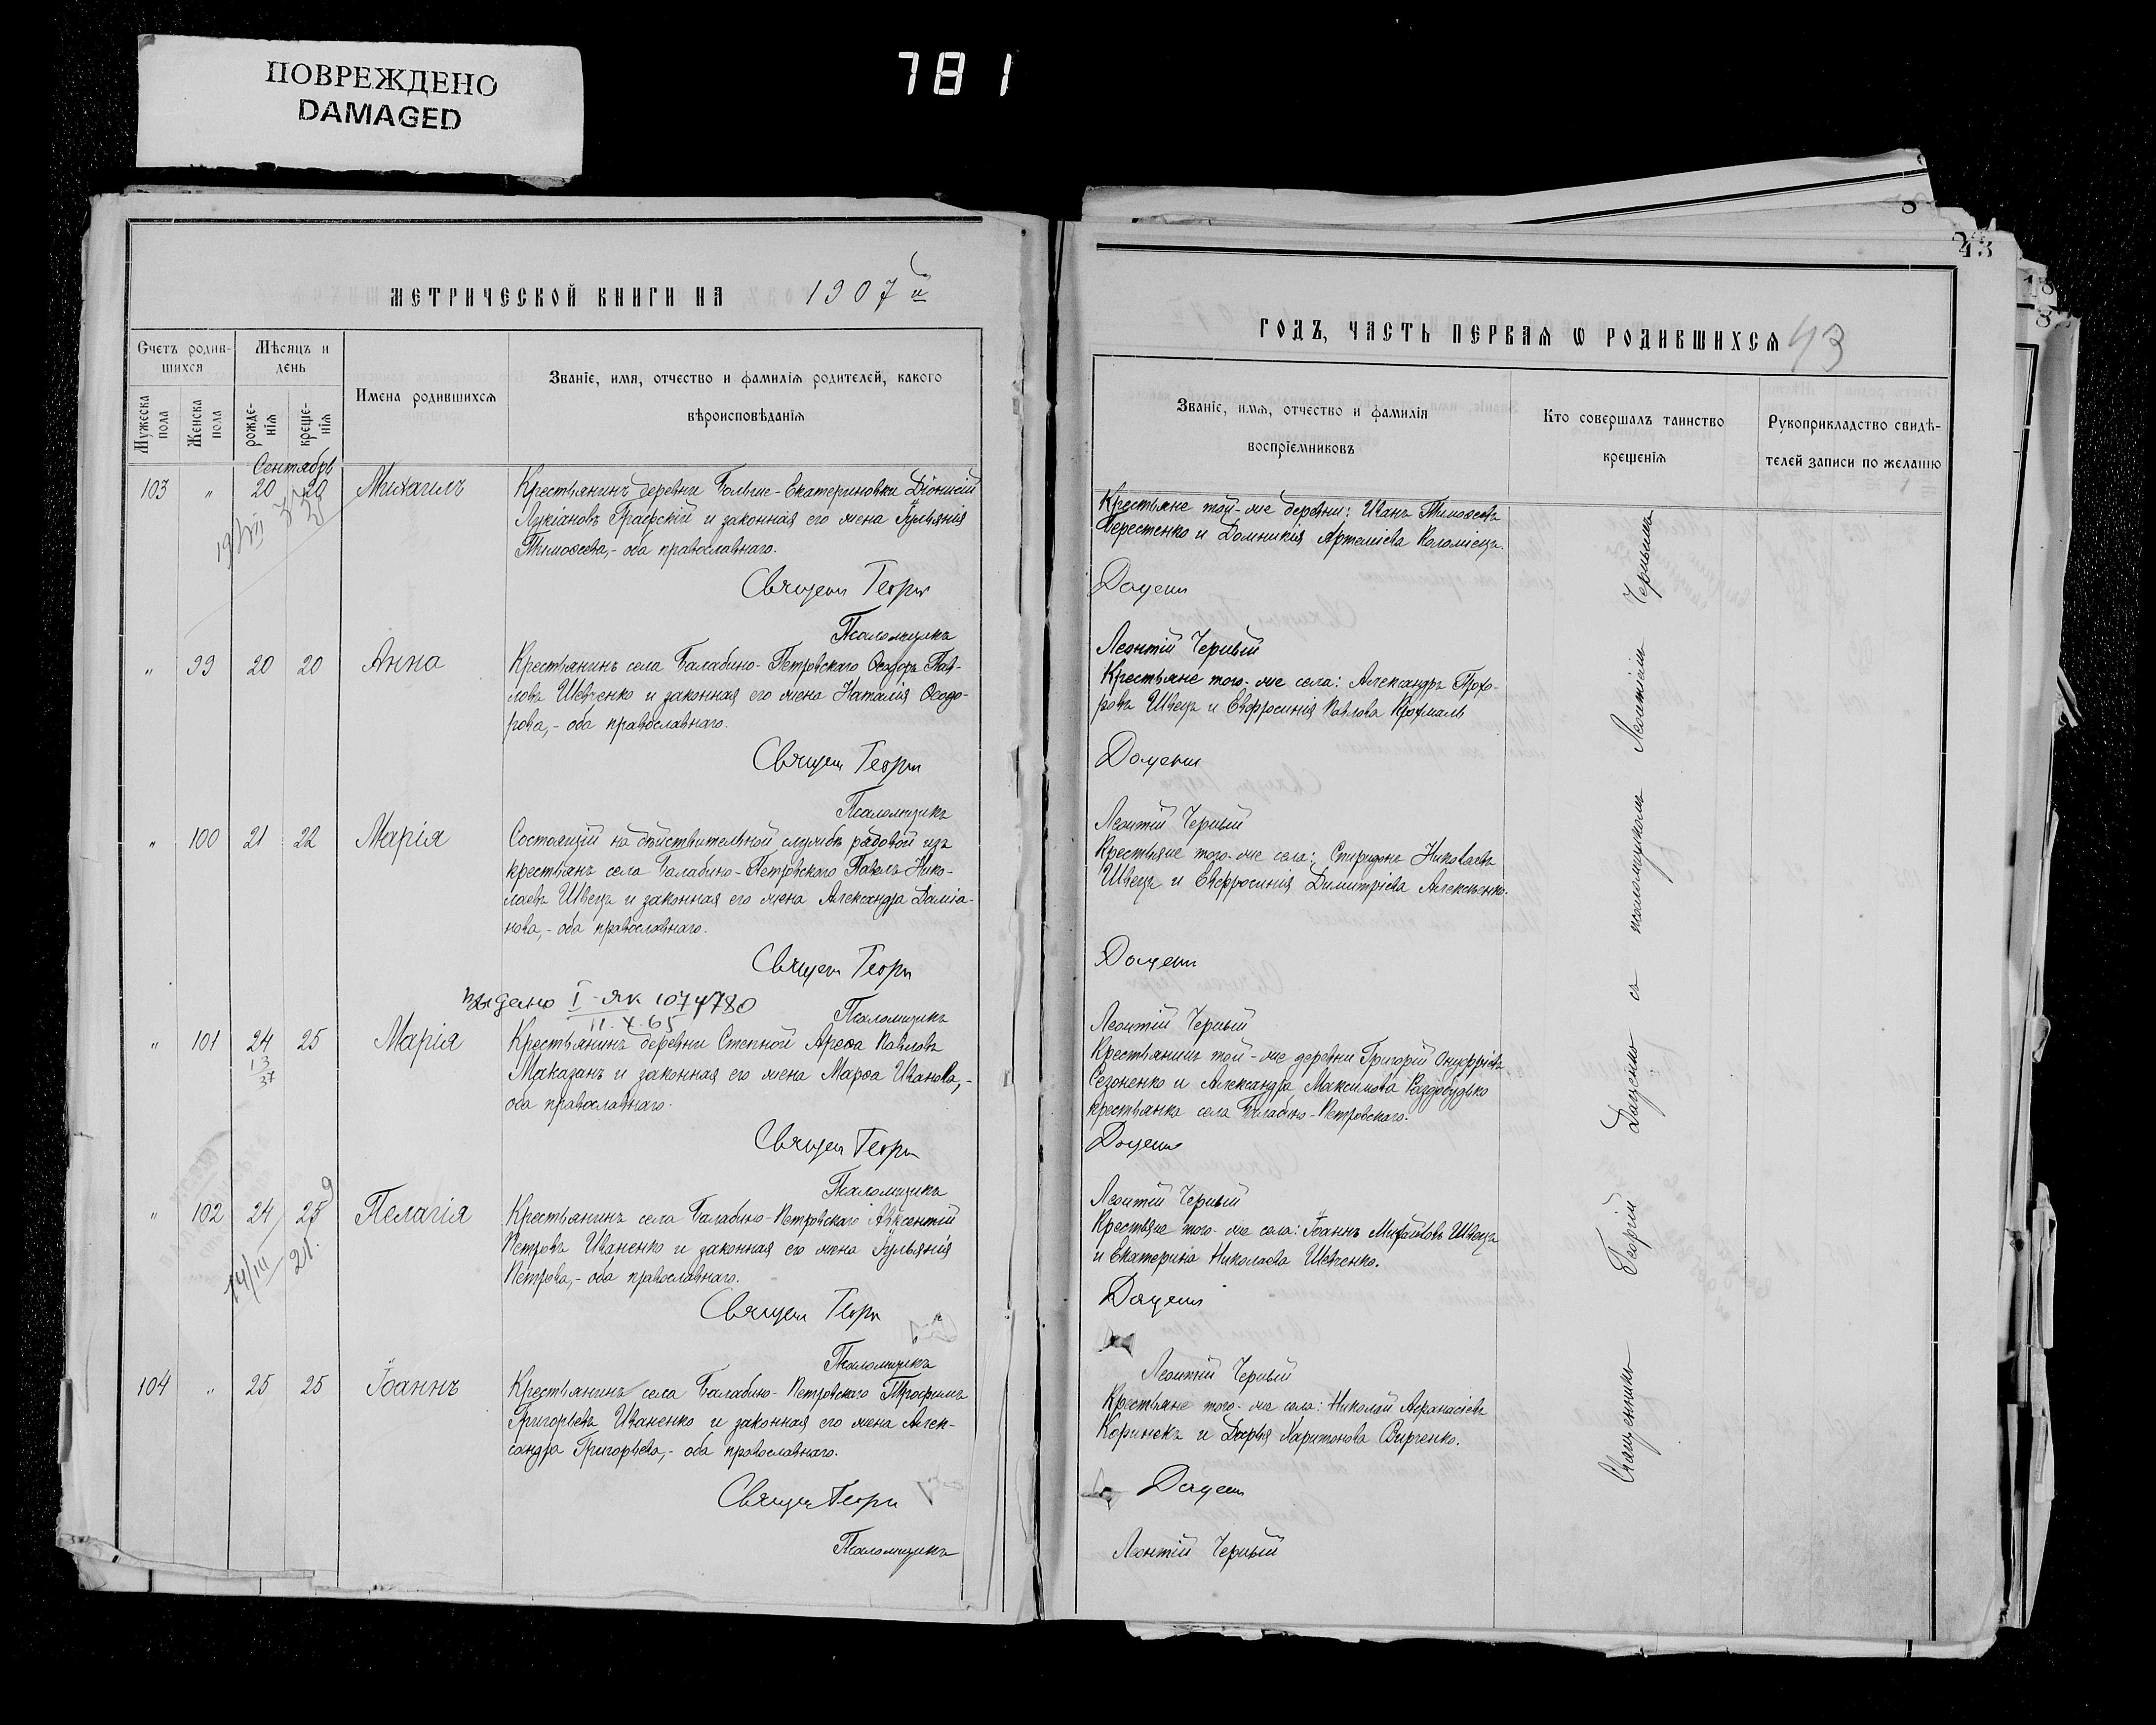 ПОВРЕЖДЕНО
DAMAGED
781
МЕТРИЧЕСКОЙ КНИГИ НА 1907й
Счетъ родив-
шихся
Мѣсяцъ и
день
Мужеска пола
Женска пола
рожде-
нія
креще-
нія
Имена родившихся
Званіе, имя, отчество и фамилія родителей, какого
вѣроисповѣданія
Сентябрь
103 " 20 20 Михаилъ
Крестьянинъ деревни Больше-Екатериновки Діонисій
Лукіановъ Графскій и законная его жена Іульянія
Тимоѳеева,- оба православнаго.
Священ Георги
Псаломщикъ
" 99 20 20 Анна
Крестьянинъ села Балабино-Петровскаго Ѳеодоръ Пав-
ловъ Шевченко и законная его жена Наталія Ѳеодо-
рова,- оба православнаго.
Священ Георги
Псаломщикъ
" 100 21 22 Марія
Состоящій на дѣйствительной службѣ рядовой изъ
крестьянъ села Балабино-Петровскаго Павелъ Нико-
лаевъ Швецъ и законная его жена Александра Даміа-
нова,- оба православнаго.
Священ Георги
Выдано I-ЯК 1074780
11.X.65
Псаломщикъ
" 101 24 25 Марія
13
37
Крестьянинъ деревни Степной Ареѳа Павловъ
Маказанъ и законная его жена Марѳа Иванова,-
оба православнаго.
Священ Георги
Псаломщикъ
" 102 24 25 Пелагія
14/III
Крестьянинъ села Балабино-Петровскаго Авксентій
Петровъ Иваненко и законная его жена Іульянія
Петрова,- оба православнаго.
Священ Георги
Псаломщикъ
104 " 25 25 Іоаннъ
Крестьянинъ села Балабино-Петровскаго Трофимъ
Григорьевъ Иваненко и законная его жена Алек-
сандра Григорьева,- оба православнаго.
Священ Георги
Псаломщикъ
43
ГОДЪ, ЧАСТЬ ПЕРВАЯ Ѡ РОДИВШИХСЯ 43
Званіе, имя, отчество и фамилія
воспріемниковъ
Кто совершалъ таинство
крещенія
Рукоприкладство свидѣ-
телей записи по желанію
Крестьяне той-же деревни: Иванъ Тимоѳеевъ
Берестенко и Домникія Артеміева Коломіецъ.
Доценко
Леонтій Черный
Крестьяне того-же села: Александръ Прохо-
ровъ Швецъ и Евфросинія Павлова Крохмаль
Доценко
Леонтій Черный
Крестьяне того-же села: Спиридонъ Николаевъ
Швецъ и Евфросинія Димитріева Алексѣнко.
Доценко
Леонтій Черный
Крестьянинъ той-же деревни Григорій Онуфріевъ
Сезоненко и Александра Максимова Раздобудько
крестьянка села Балабино-Петровскаго.
Доценко
Леонтій Черный
Крестьяне того-же села: Іоаннъ Михайловъ Швецъ
и Екатерина Николаева Шевченко.
Доценко
Леонтій Черный
Крестьяне того-же села: Николай Аѳанасіевъ
Коринекъ и Дарья Харитонова Вирченко.
Доценко
Леонтій Черный
Священникъ Георгій Даценко съ псаломщикомъ Леонтіемъ Чернымъ